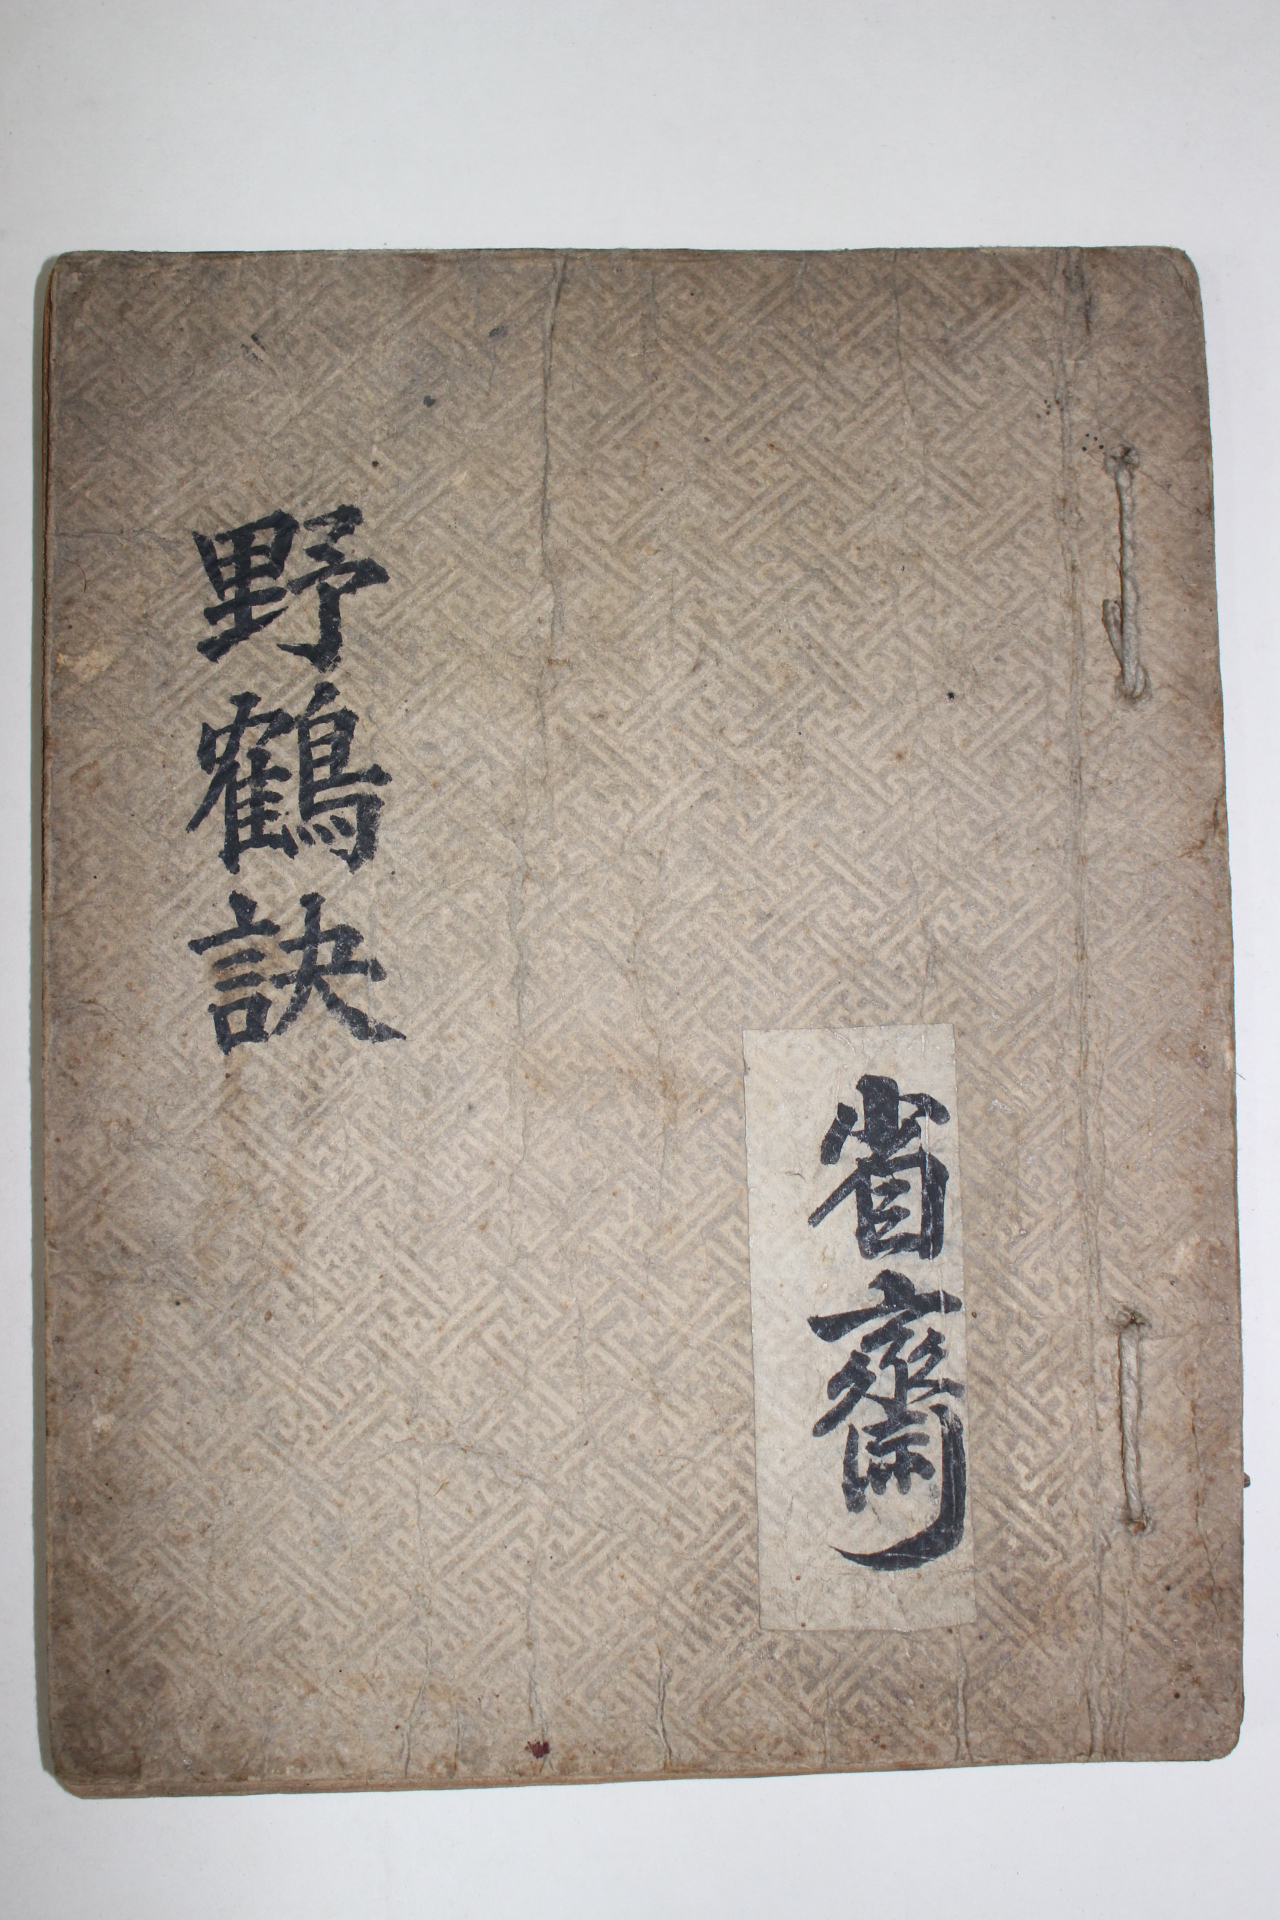 野鶴訣
省齋